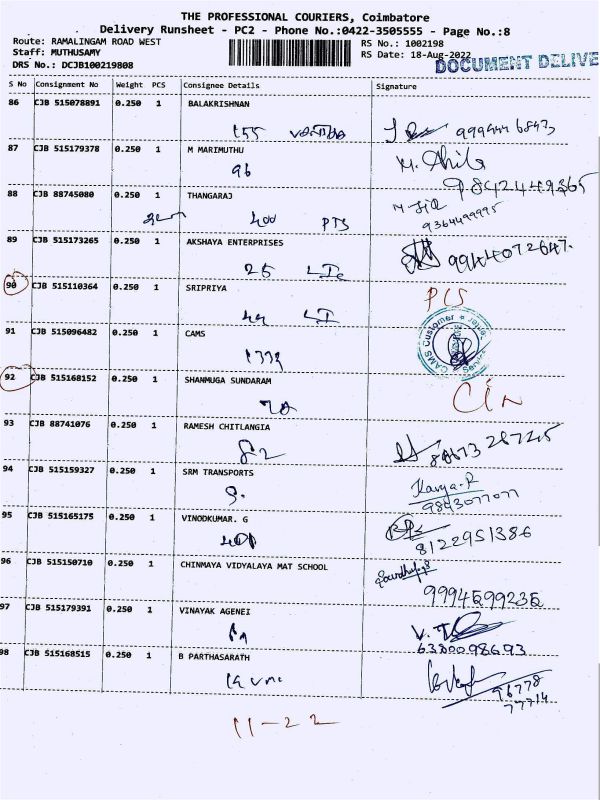 THE PROFESSIONAL COURIERS, Coimbatore
Delivery Runsheet - PC2 - Phone No.:0422-3505555 - Page No.:8
Route: RAMALINGAM ROAD WEST
RS No.: 1002198
Staff: MUTHUSAMY
RS Date: 18-Aug-2022
DOCUMENT DELIVE
DRS No.: DCJB100219808
S No Consignment No Weight PCS Consignee Details Signature
86 CJB 515078891 0.250 1 BALAKRISHNAN
155
87 CJB 515179378 0.250 1 M MARIMUTHU
96 9842449365
88 CJB 88745080 0.250 1 THANGARAJ
400 PTS 9364499995
89 CJB 515173265 0.250 1 AKSHAYA ENTERPRISES
25 9944072647.
90 CJB 515110364 0.250 1 SRIPRIYA
44
91 CJB 515096482 0.250 1 CAMS
CAMS Customer
92 CJB 515168152 0.250 1 SHANMUGA SUNDARAM
93 CJB 88741076 0.250 1 RAMESH CHITLANGIA
82
94 CJB 515159327 0.250 1 SRM TRANSPORTS
9. Kavya.R
9843077077
95 CJB 515165175 0.250 1 VINODKUMAR. G
8122951386
96 CJB 515150710 0.250 1 CHINMAYA VIDYALAYA MAT SCHOOL
9994599235
97 CJB 515179391 0.250 1 VINAYAK AGENEI
6380098693
98 CJB 515168515 0.250 1 B PARTHASARATH
96778
77714
11-22